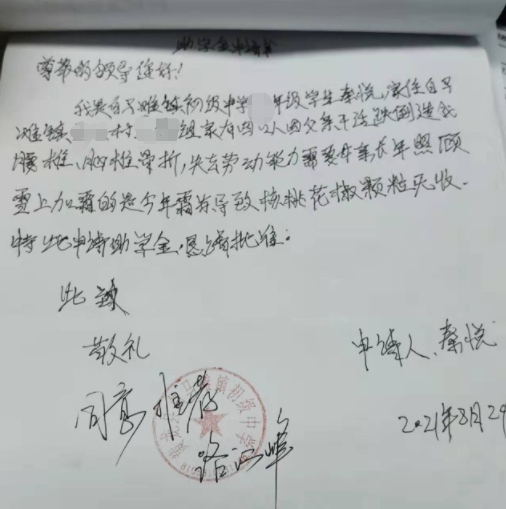 助学金申请书
尊敬的领导您好！
我是白马滩镇初级中学 年级学生秦悦，家住白马
滩镇 村 组家有四口人因父亲干活跌倒造成
腰椎、胸椎骨折，失去劳动能力需要母亲长年照顾
雪上加霜的是今年霜冻导致核桃花椒颗粒无收。
特此申请助学金，恳请批准。
此致
敬礼
申请人、秦悦
同意推荐
2021年8月29
镇初级中学